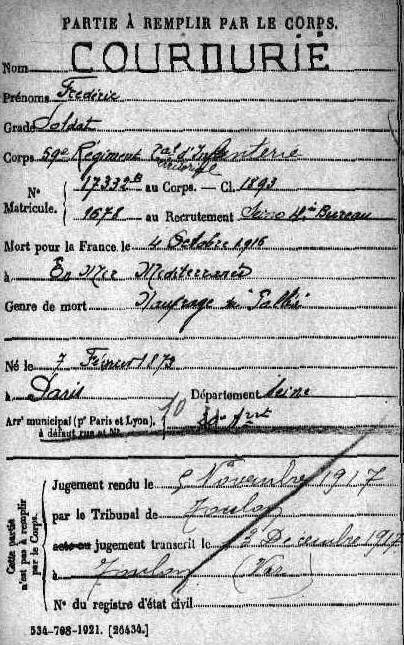 PARTIE À REMPLIR PAR LE CORPS.
Nom COURDURIÉ
Prénoms Frédéric
Grade Soldat
Corps 59e Régiment d'Infanterie
territorial
N° Matricule. { 17332B au Corps. — Cl. 1893
1678 au Recrutement Seine Bureau
Mort pour la France le 4 Octobre 1916
à En Mer Méditerranée
Genre de mort Naufrage du "Gallia"
Né le 7 Février 1873
à Paris Département Seine
Arr' municipal (p' Paris et Lyon), à défaut rue et N°. { 10 Arrt
Cette partie n'est pas à remplir par le Corps.
Jugement rendu le 5 Novembre 1917
par le Tribunal de Toulon
acte ou jugement transcrit le 3 Décembre 1917
à Toulon (Var)
N° du registre d'état civil
534-708-1921. [26434.]